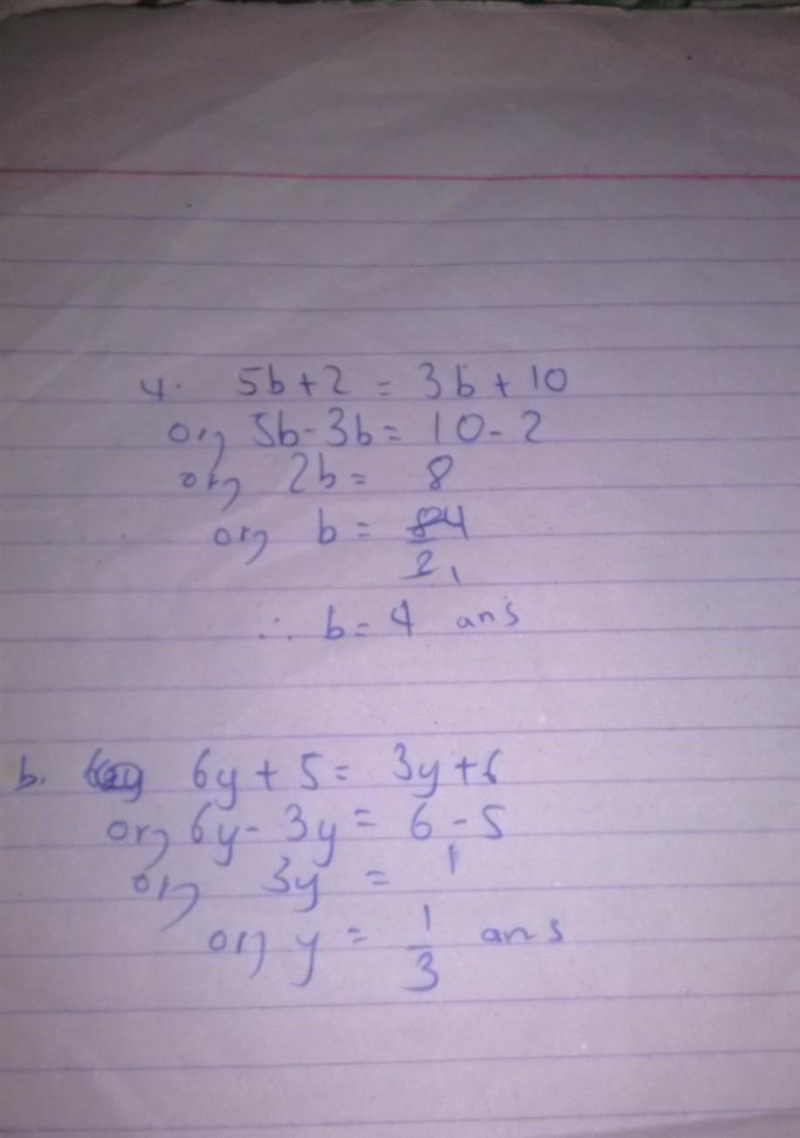 4. 5b+2 = 3b+10
or, 5b-3b= 10-2
or, 2b= 8
or, b= 84
2 1
∴ b=4 ans
b. 6y+5= 3y+6
or, 6y-3y= 6-5
or, 3y = 1
or, y = 1/3 ans